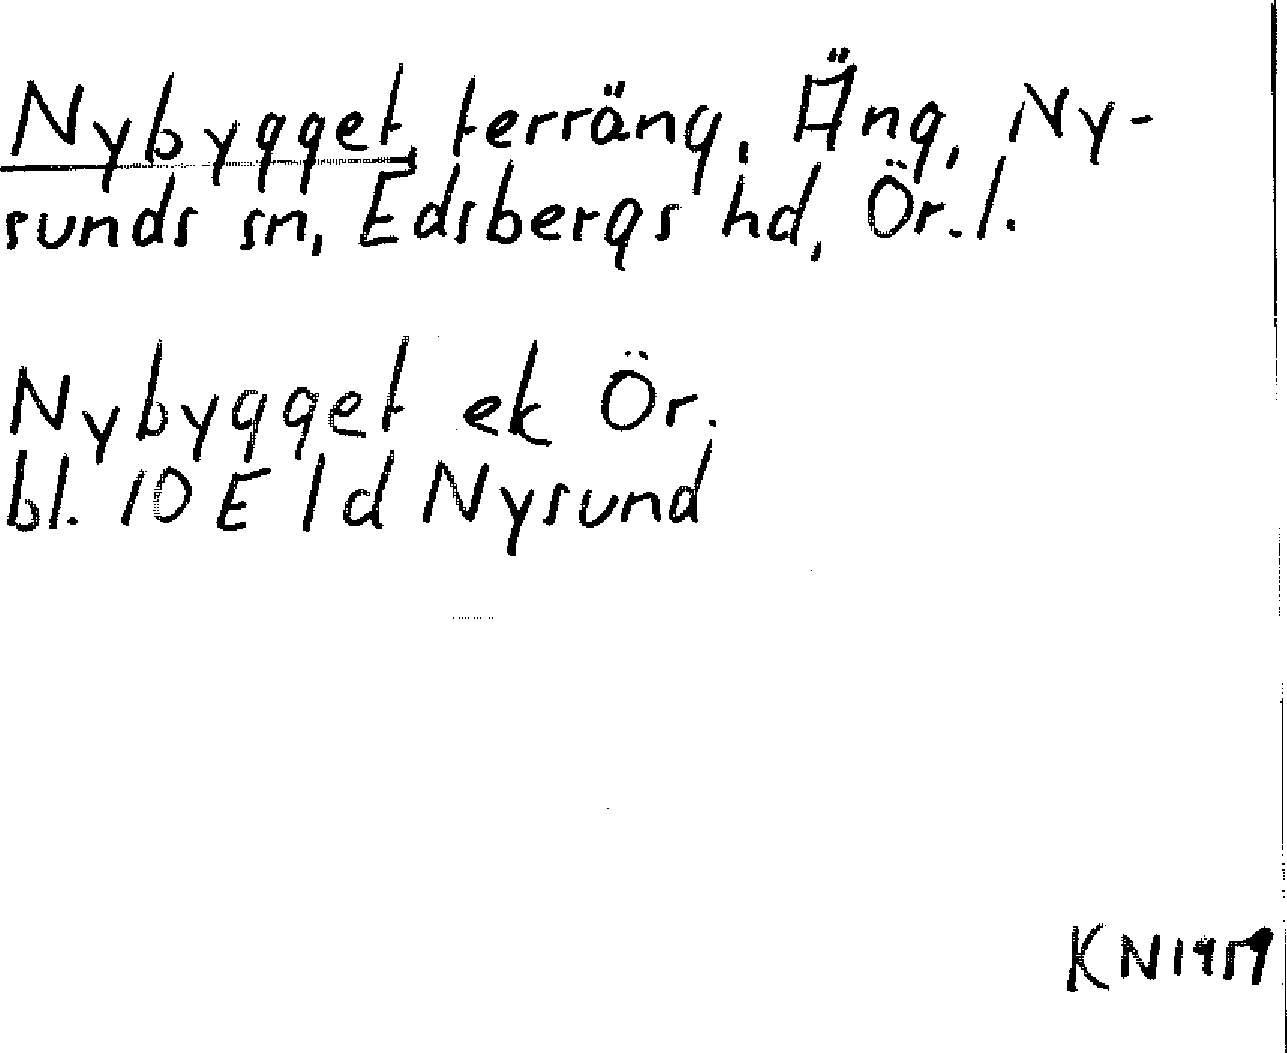 Nybygget, terräng, Äng, Ny-
sunds sn, Edsbergs hd, Ör. l.
Nybygget ek Ör.
bl. 10 E 1 d Nysund
KN 1959